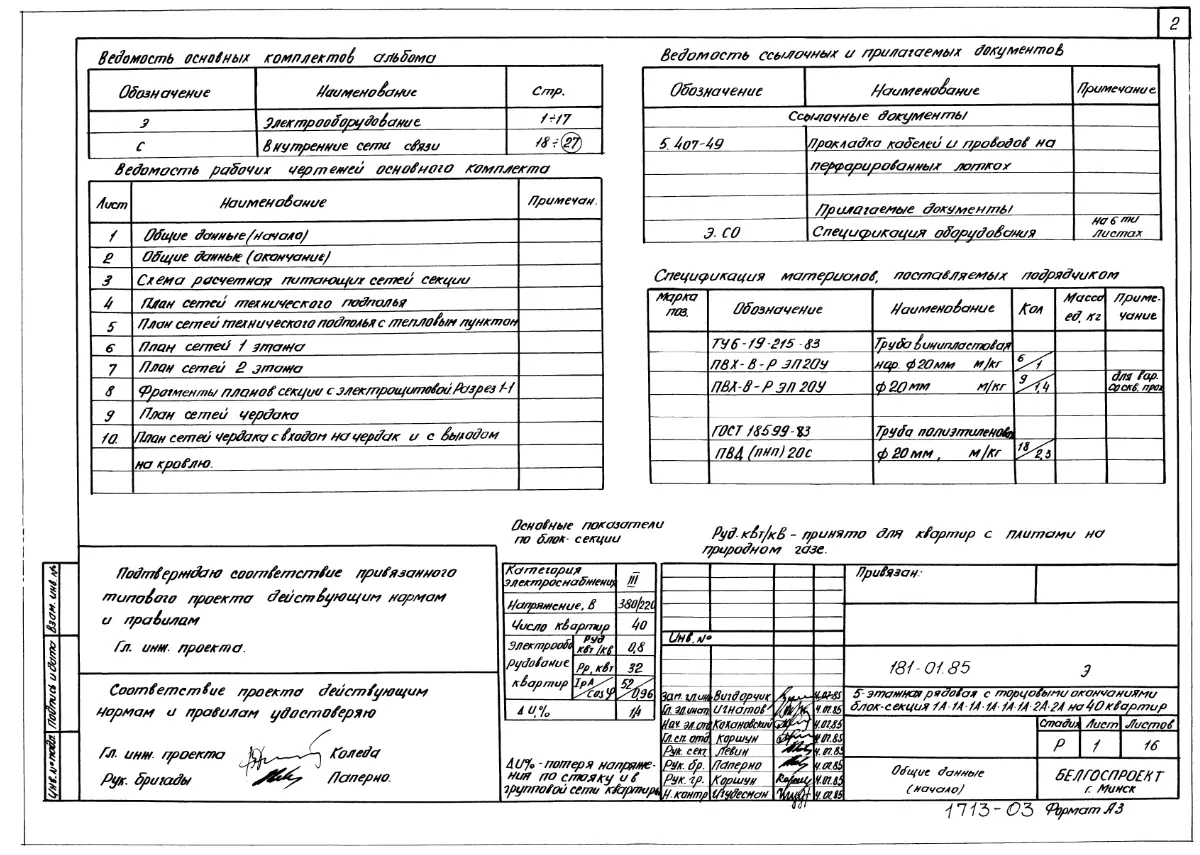 2
Ведомость основных комплектов альбома
Обозначение Наименование Стр.
Э Электрооборудование 1÷17
С Внутренние сети связи 18÷27
Ведомость рабочих чертежей основного комплекта
Лист Наименование Примечан.
1 Общие данные (начало)
2 Общие данные (окончание)
3 Схема расчетная питающих сетей секции
4 План сетей технического подполья
5 План сетей технического подполья с тепловым пунктом
6 План сетей 1 этажа
7 План сетей 2 этажа
8 Фрагменты планов секции с электрощитовой. Разрез 1-1
9 План сетей чердака
10. План сетей чердака с входом на чердак и с выходом
на кровлю.
Ведомость ссылочных и прилагаемых документов
Обозначение Наименование Примечание
Ссылочные документы
5.407-49 Прокладка кабелей и проводов на
перфарированных лотках
Прилагаемые документы
Э. СО Спецификация оборудования на 6 ти листах
Спецификация материалов, поставляемых подрядчиком
Марка поз. Обозначение Наименование Кол Масса ед, кг Приме-чание
ТУ6-19-215-83 Труба винипластовая
ПВХ-В-Р ЭП20У нар. ф20мм м/кг 6/1
ПВХ-В-Р ЭП 20У ф20мм м/кг 9/1,4 для вар.
ГОСТ 18599-83 Труба полиэтиленовая
ПВД (пнп) 20с ф20мм, м/кг 18/2,3
Основные показатели
по блок-секции
Категория электроснабжения III
Напряжение, В 380/220
Число квартир 40
Электрообо рудование квартир Руд квт/кв 0,8
Рр, квт 32
Iр А/cos φ 52/0,96
Δ U,% 1,4
ΔU% - потеря напряже-
ния по стояку и в
групповой сети квартиры
Руд.квт/кв - принято для квартир с плитами на
природном газе.
Подтверждаю соответствие привязанного
типового проекта действующим нормам
и правилам
Гл. инж. проекта.
Соответствие проекта действующим
нормам и правилам удостоверяю
Гл. инж. проекта Коледа
Рук. бригады Паперно.
Инв.№ подл. Подпись и дата Взам. инв. №
Инв. №
Зам. гл.инж Вигдорчик 4.02.85
Гл. эл.инст. Игнатов 4.02.85
Нач. эл.отд Кохановский 4.02.85
Гл.сп. отд. Коршун 4.02.85
Рук. сект. Левин 4.02.85
Рук. бр. Паперно 4.02.85
Рук. гр. Коршун 4.02.85
Н. контр Игудесман 4.02.85
Привязан:
181-01.85 Э
5-этажная рядовая с торцовыми окончаниями
блок-секция 1А-1А-1А-1А-1А-1А-2А-2А на 40 квартир
Стадия Лист Листов
Р 1 16
Общие данные
(начало)
БЕЛГОСПРОЕКТ
г. Минск
1713-03 Формат А3